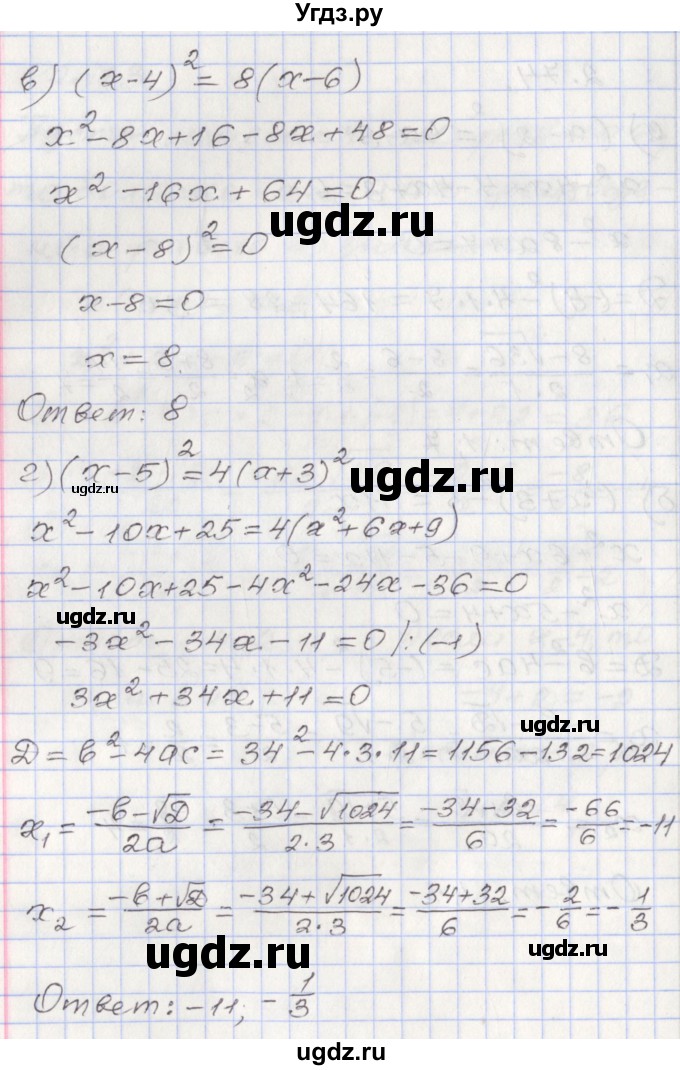 Угдз.ру
в) (x-4)² = 8(x-6)
x²-8x+16-8x+48=0
x²-16x+64=0
ugdz.ru
(x-8)²=0
x-8=0
x=8.
Ответ: 8
г) (x-5)²=4(x+3)²
ugdz.ru
ugdz.ru
x²-10x+25=4(x²+6x+9)
x²-10x+25-4x²-24x-36=0
ugdz.ru
-3x²-34x-11=0 |:(-1)
3x²+34x+11=0
ugdz.ru
D=b²-4ac=34²-4·3·11=1156-132=1024
x₁=(-b-√D)/2a=(-34-√1024)/2·3=(-34-32)/6=-66/6=-11
x₂=(-b+√D)/2a=(-34+√1024)/2·3=(-34+32)/6=-2/6=-1/3
ugdz.ru
ugdz.ru
Ответ: -11; -1/3
ugdz.ru